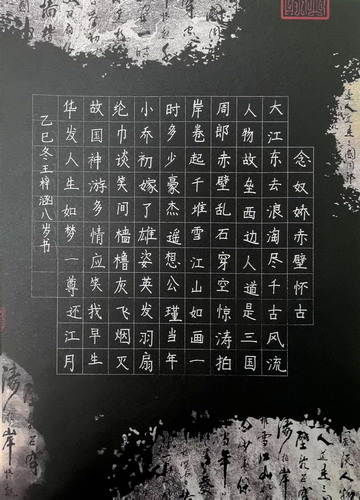 念奴娇赤壁怀古
大江东去浪淘尽千古风流
人物故垒西边人道是三国
周郎赤壁乱石穿空惊涛拍
岸卷起千堆雪江山如画一
时多少豪杰遥想公瑾当年
小乔初嫁了雄姿英发羽扇
纶巾谈笑间樯橹灰飞烟灭
故国神游多情应笑我早生
华发人生如梦一尊还江月
乙巳冬王梓涵八岁书